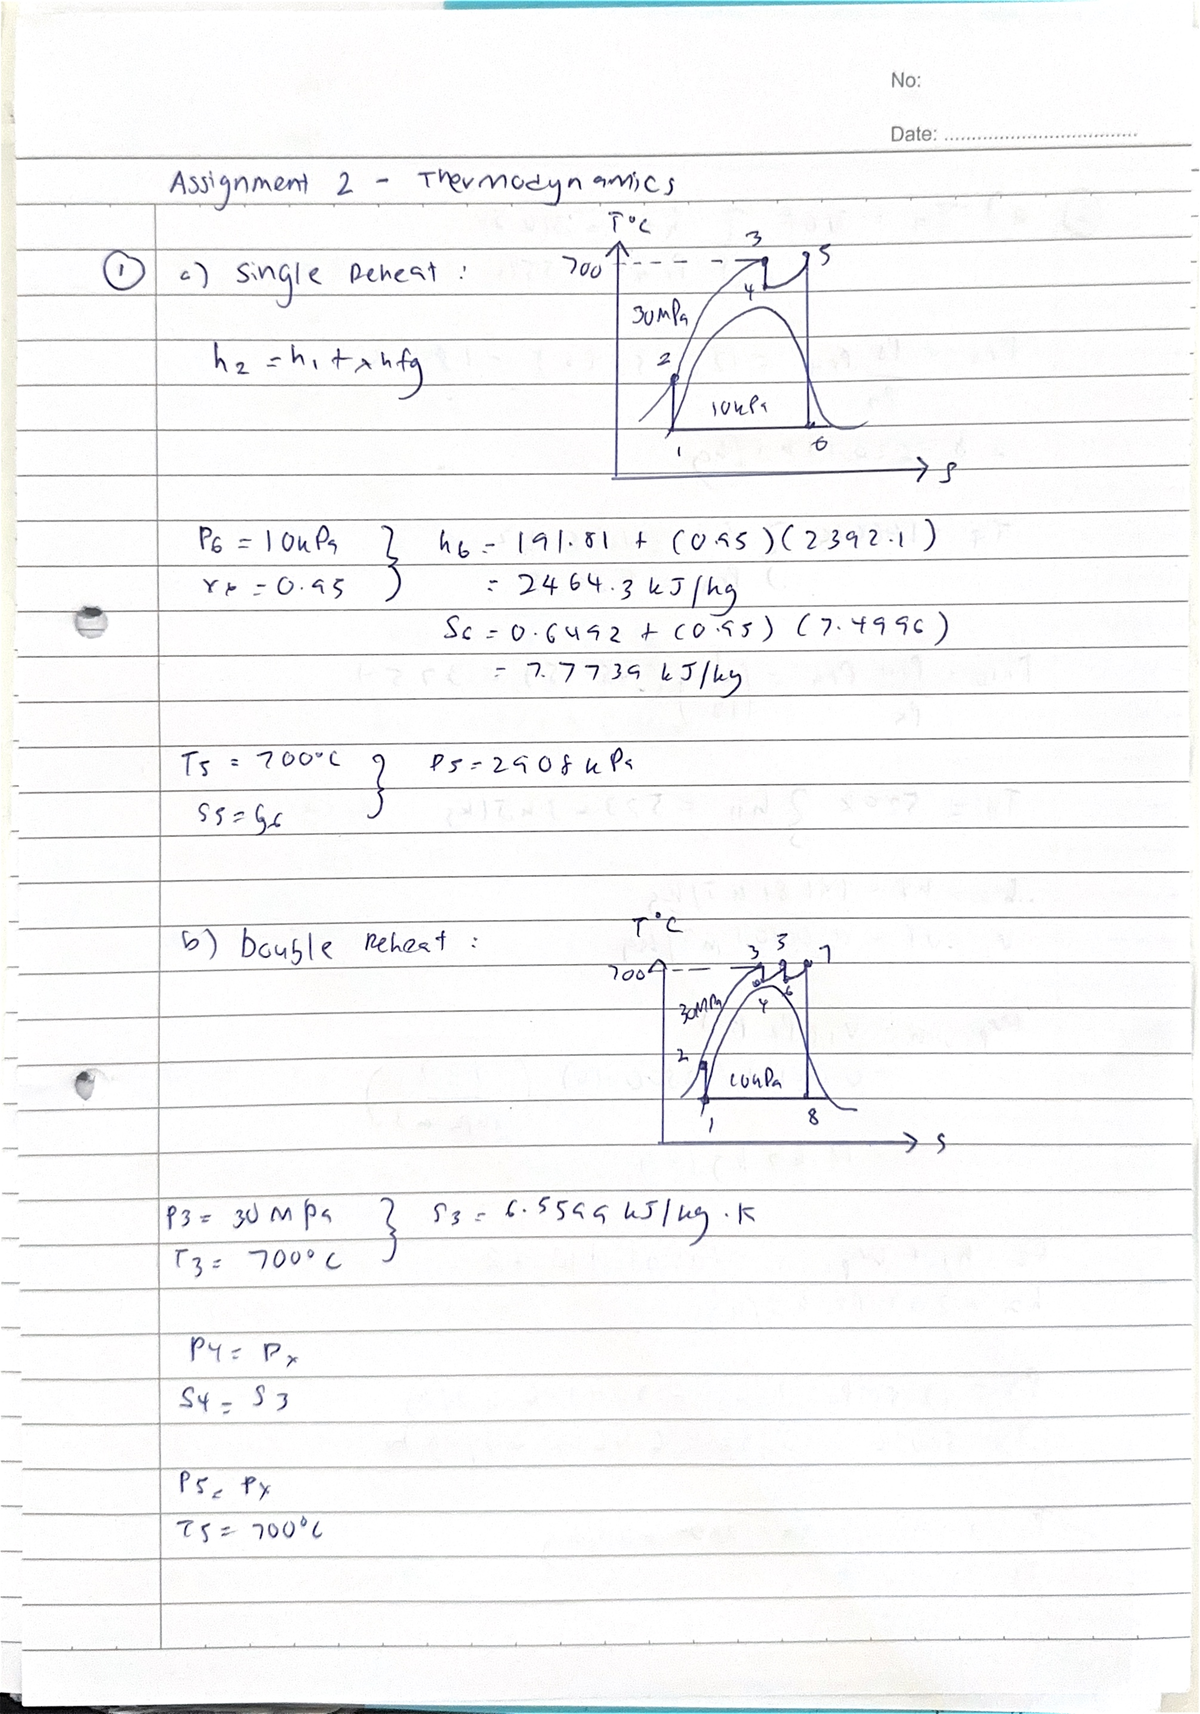 No:
Date: ..................................
Assignment 2 - Thermodynamics
① a) Single Reheat :
T°C
700
3
5
4
30MPa
2
10kPa
1
6
s
h2 = h1 + x hfg
P6 = 10kPa } h6 = 191.81 + (0.95)(2392.1)
x6 = 0.95 = 2464.3 kJ/kg
S6 = 0.6492 + (0.95) (7.4996)
= 7.7739 kJ/kg
T5 = 700°C } P5 = 2908 kPa
S5 = S6
b) Double Reheat :
T°C
700
3 5 7
4 6
30MPa
2
10kPa
1
8
s
P3 = 30 MPa } S3 = 6.5599 kJ/kg.K
T3 = 700°C
P4 = Px
S4 = S3
P5 = Px
T5 = 700°C